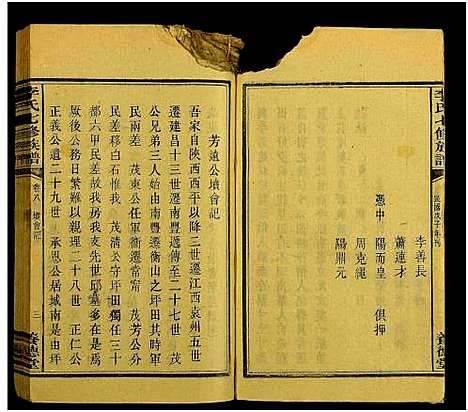 李氏七修族譜
民國戊子年刊
李善長
蕭連才
憑中 陽而皇 俱押
周克繩
陽鼎元
養德堂
芳遠公墳會記
吾家自陝西西平以降三世遷江西袁州五世
遷建昌十三世遷南豐遞傳至二十七世 茂
公兄弟三人始由南豐遷衡山之坪田其時軍
民兩差 茂東公任軍衛當甯 茂芳公分
民差移白石惟我 茂清公守坪田獨任三十
都六甲民差故我房我支先世邱墓多在焉
正義公遺二十九世 承恩公居城南是由坪
李氏七修族譜
卷八 墳會記
三
養德堂